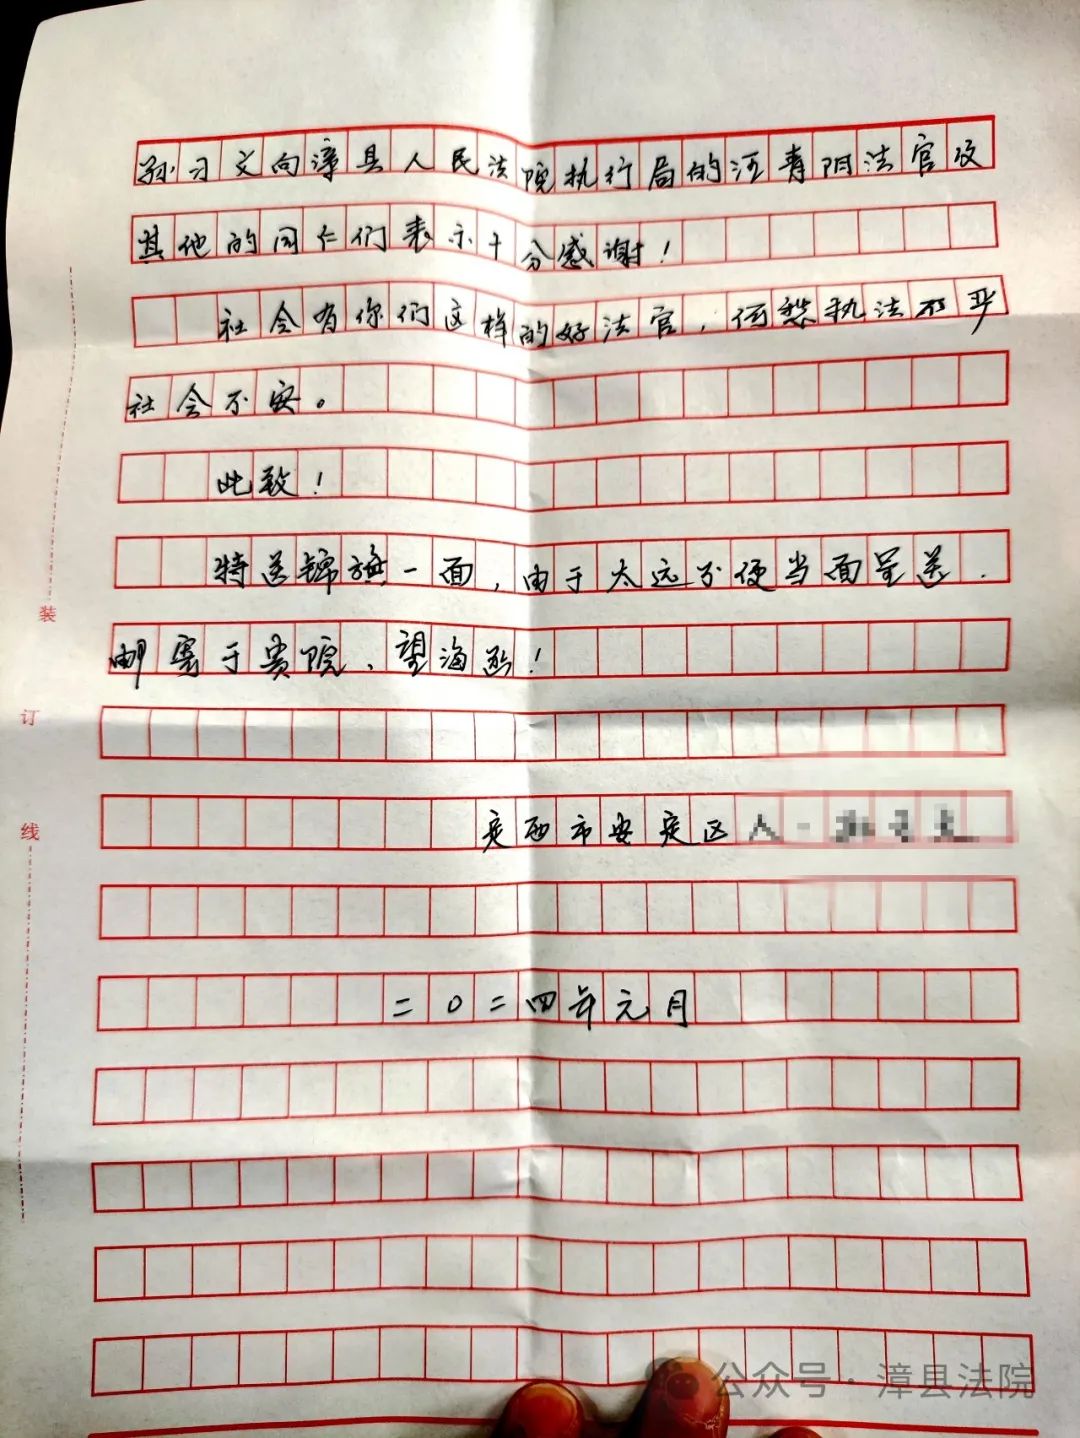 孙习文向漳县人民法院执行局的汪青阴法官及
其他的同仁们表示十分感谢！
社会有你们这样的好法官，何愁执法不严
社会不安。
此致！
特送锦旗一面，由于太远不便当面呈送．
邮寄于贵院、望海函！
装
订
线
定西市安定区人
二〇二四年元月
公众号·漳县法院